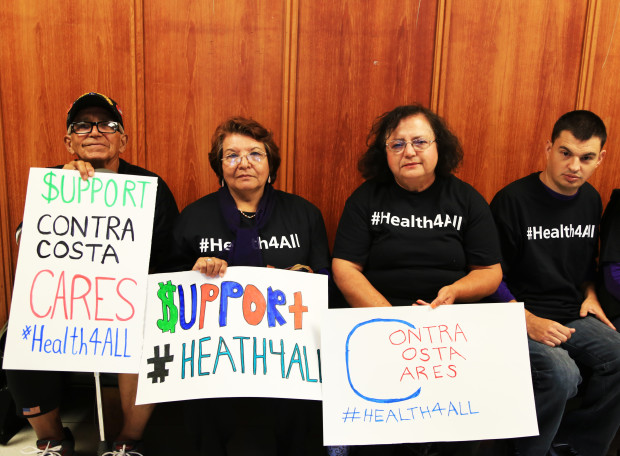 $UPPORT
CONTRA
COSTA
CARES
*Health4ALL
$UPPORT
#HEATH4ALL
#Health4All
#Health4All
CONTRA
OSTA
ARES
#HEALTH4ALL
#Health4All